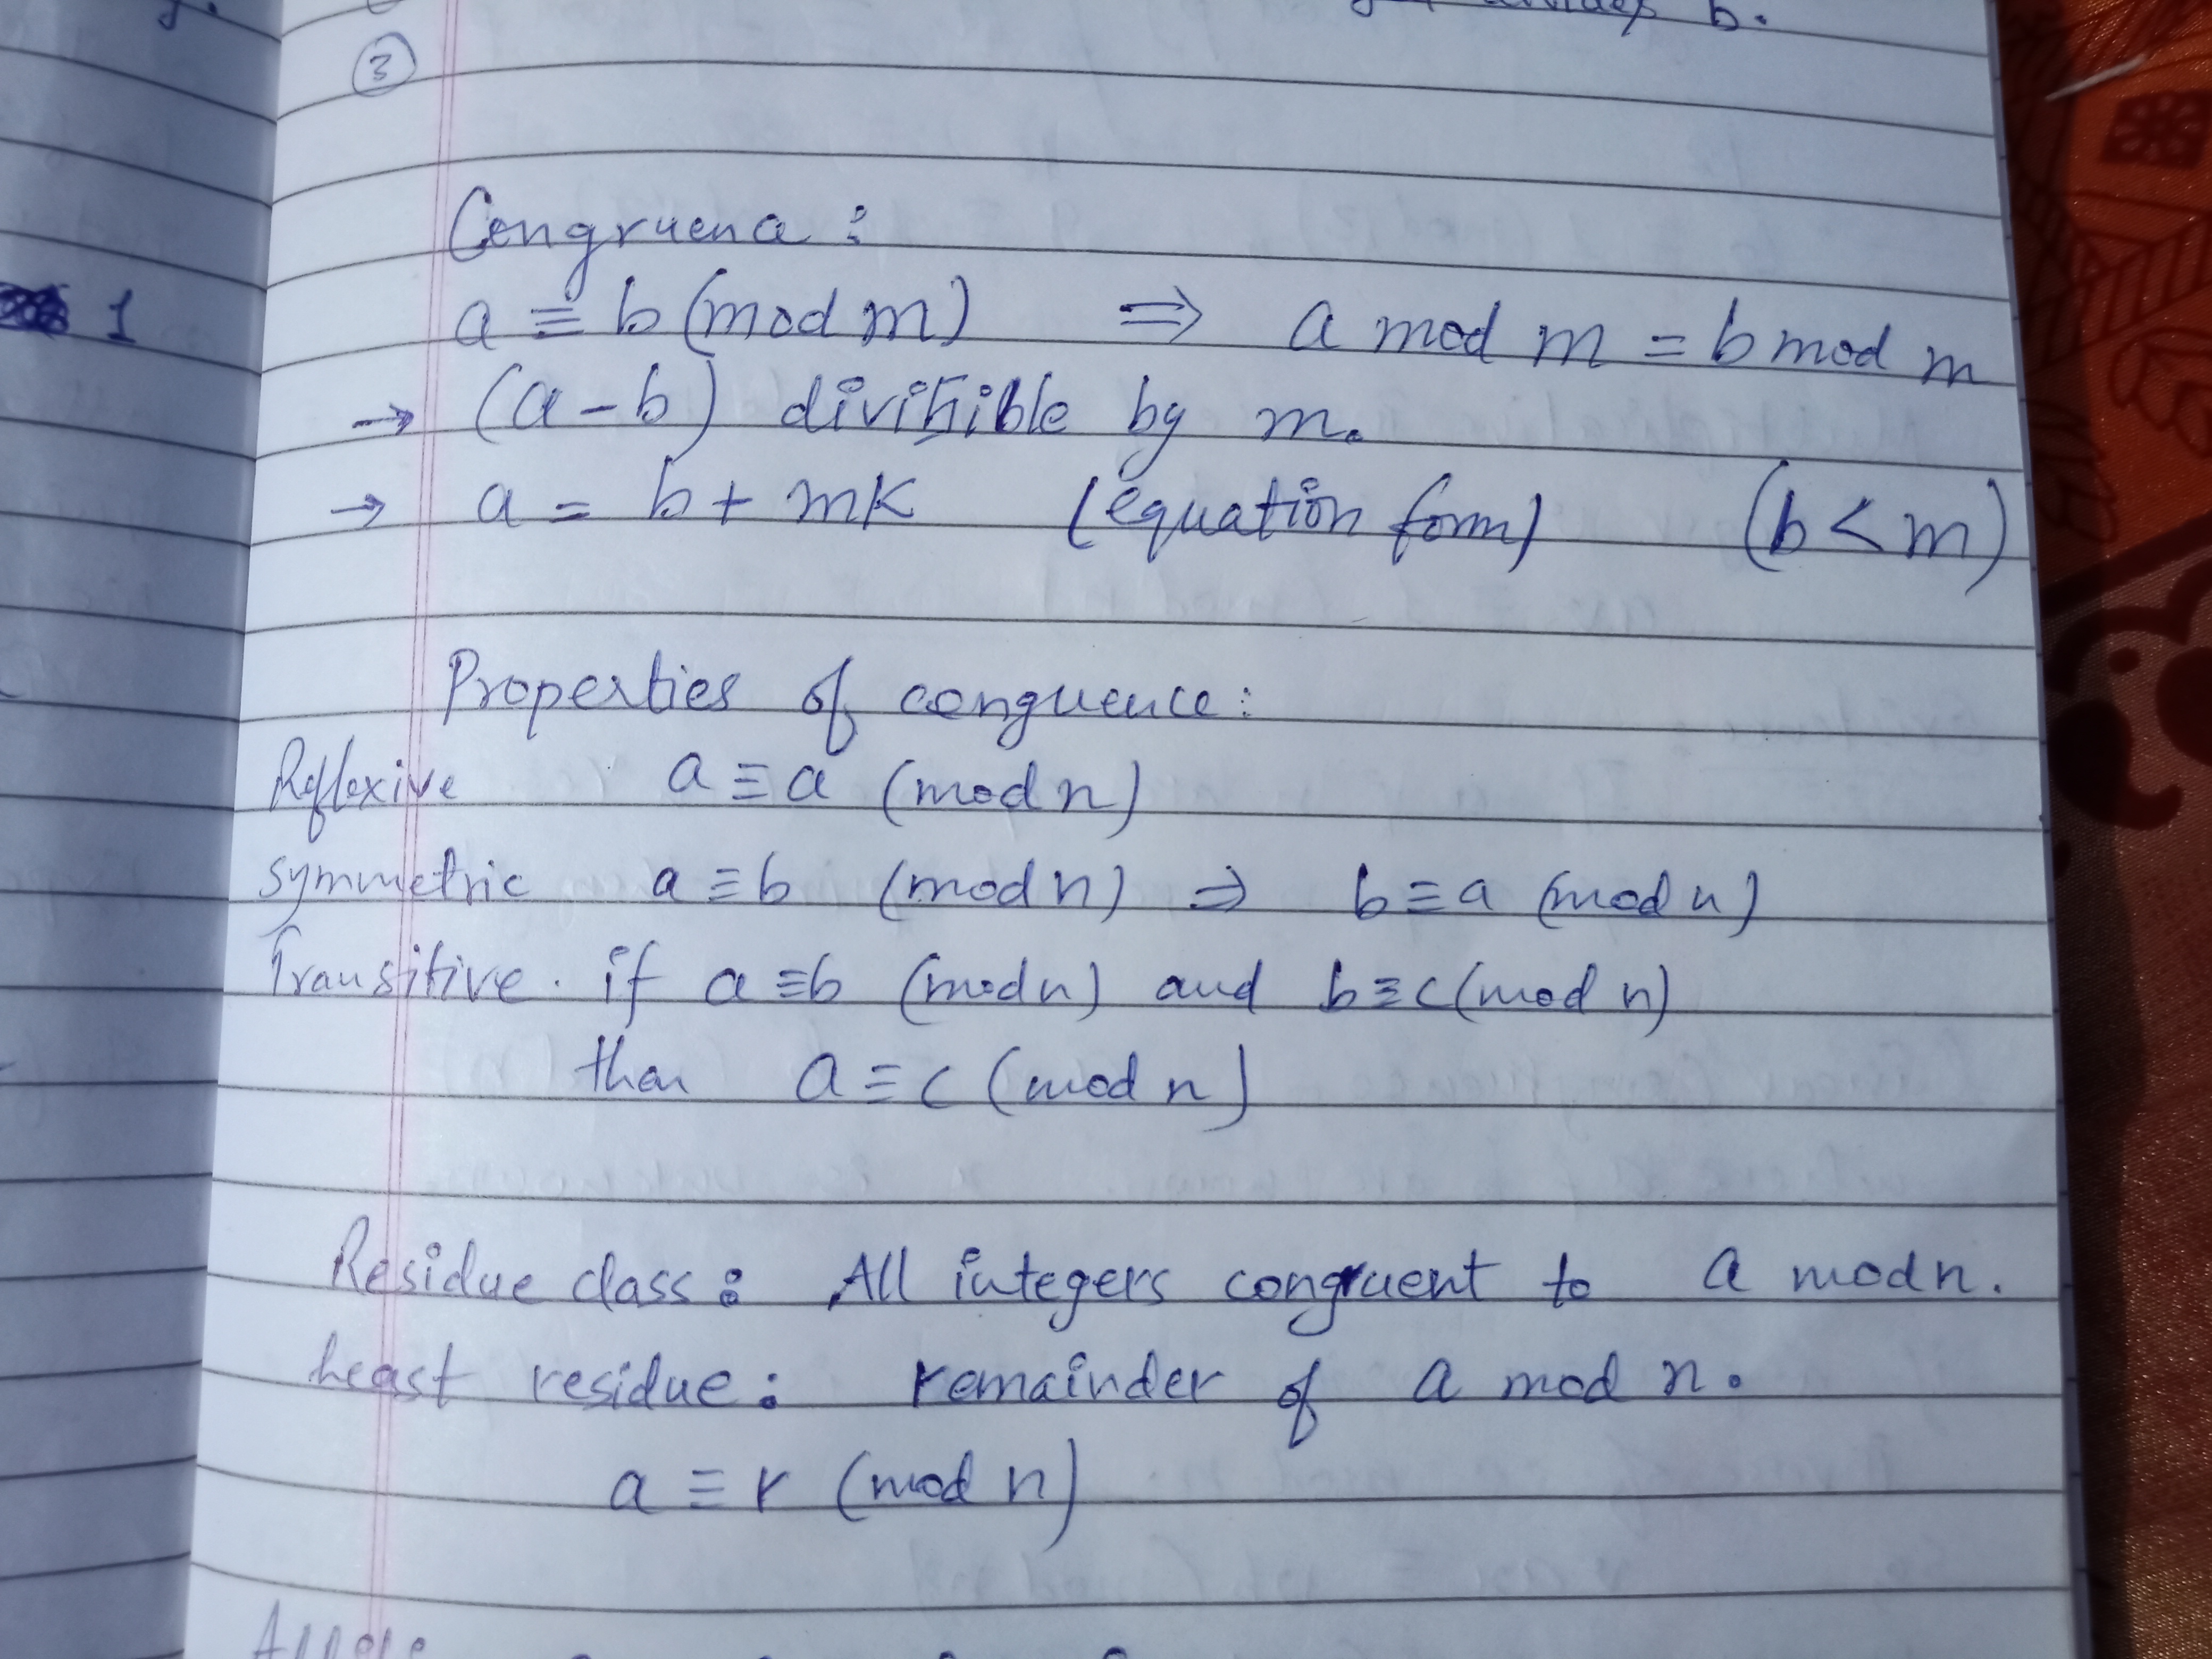 b.
③
Congruena :
a ≡ b (mod m) ⇒ a mod m = b mod m
1
→ (a - b) divisible by m.
→ a = b + mK (equation form) (b < m)
Properties of conguence:
Reflexive a ≡ a (mod n)
symmetric a ≡ b (mod n) ⇒ b ≡ a (mod n)
Transitive. if a ≡ b (mod n) and b ≡ c (mod n)
than a ≡ c (mod n)
Residue class: All integers congruent to a mod n.
Least residue: remainder of a mod n.
a ≡ r (mod n)